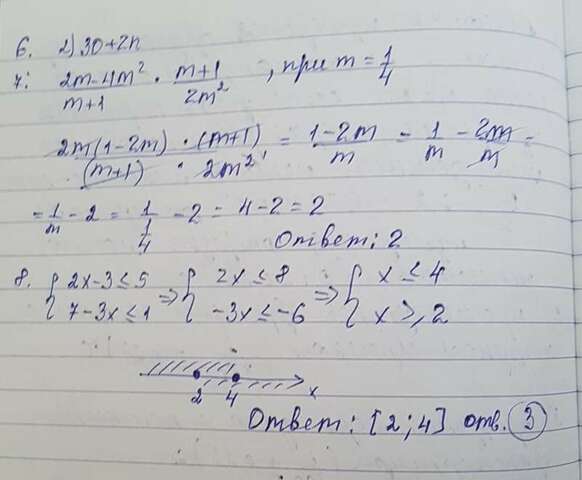 6. 2) 30+2n
7: (2m-4m²)/(m+1) · (m+1)/(2m²) , при m = 1/4
(2m(1-2m))/(m+1) · (m+1)/(2m²) = (1-2m)/m = 1/m - 2m/m =
= 1/m - 2 = 1/(1/4) - 2 = 4-2 = 2
Ответ: 2
8. { 2x-3≤5 ⇒ { 2x≤8 ⇒ { x≤4
7-3x≤1 -3x≤-6 x≥2
2 4 x
Ответ: [2;4] отв. 3